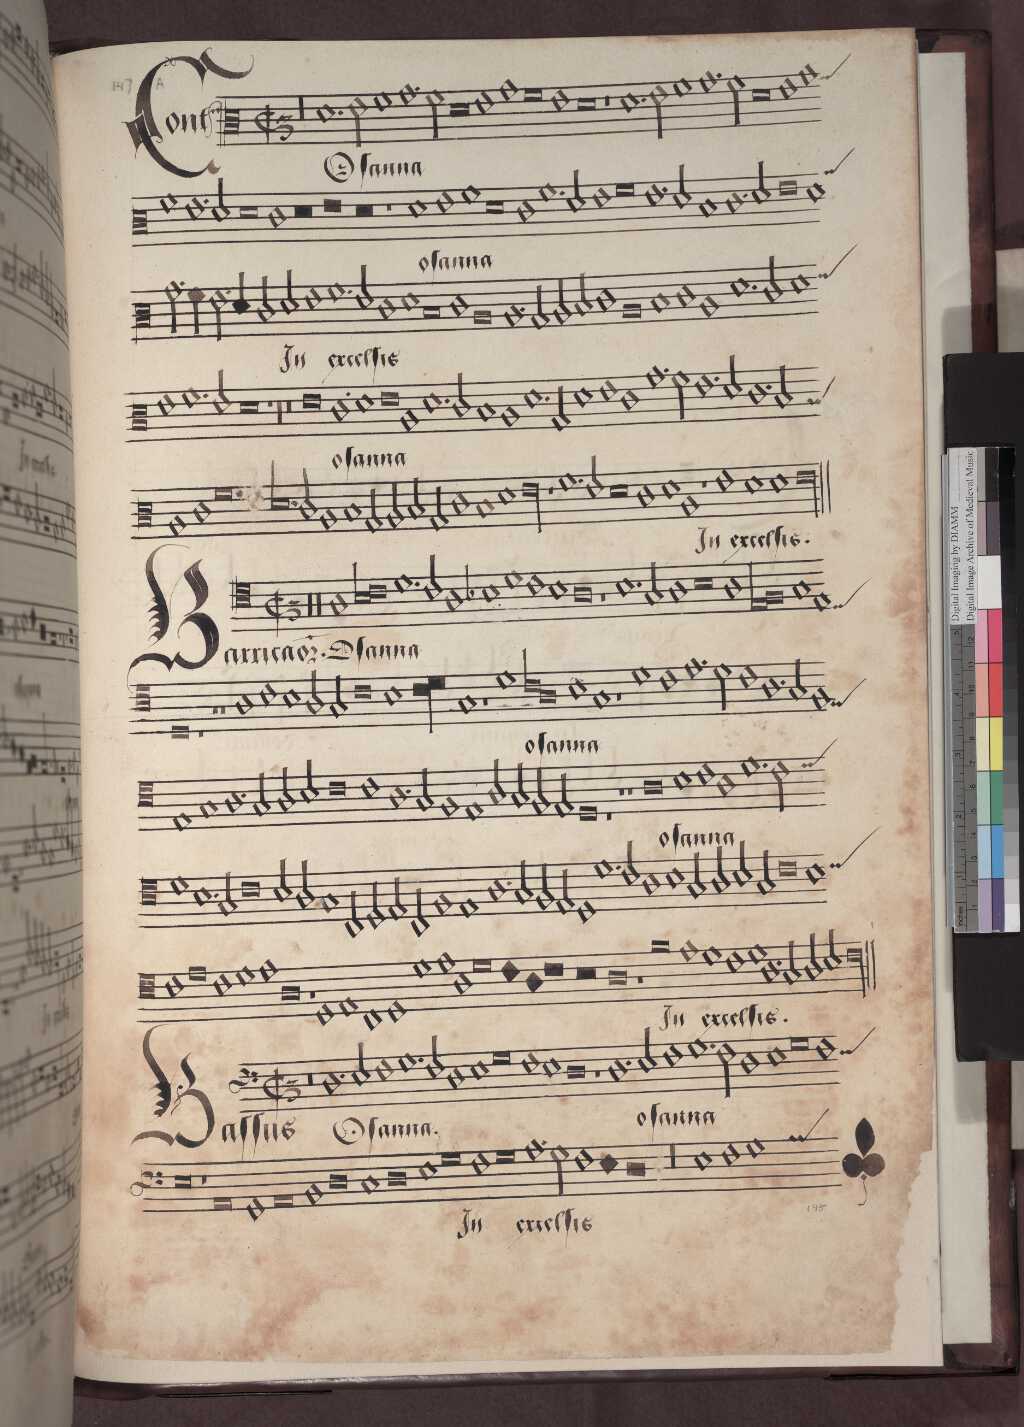 147 A
Cont
Osanna
osanna
In excelsis
osanna
In excelsis.
Barricaoꝝ. Osanna
osanna
osanna
In excelsis.
Bassus Osanna. osanna
In excelsis
195
Digital Imaging by DIAMM
Digital Image Archive of Medieval Music